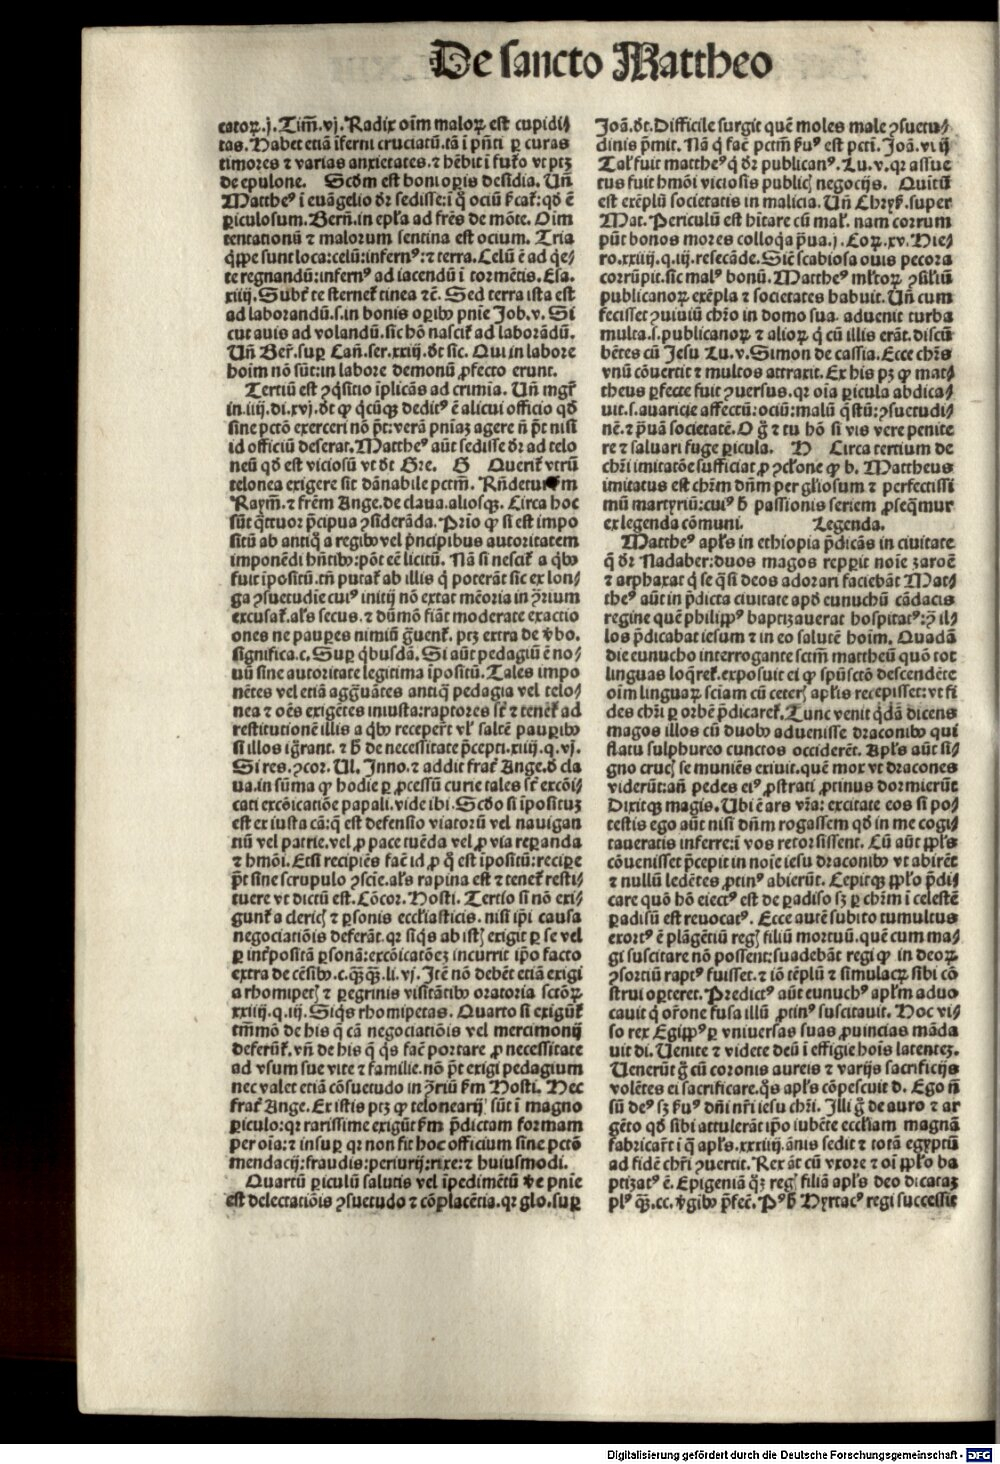 De sancto Mattheo
catoꝝ.j.Tim̄.vj.Radix oīm maloꝝ est cupidi⸗
tas.Habet etiā īferni cruciatū.tā ī pn̄ti ꝑ curas
timores ⁊ varias anxietates.⁊ hēbit ī futo vt ptꝫ
de epulone. Scd̓m est boni oꝑis desidia. Un̄
Matthe⁹ ī euāgelio dr̄ sedisse:ī q̊ ociū
ꝑiculosum.Bern̄.in epl̄a ad frēs de mōte. Oīm
tentationū ⁊ malorum sentina est ocium. Tria
q̄ꝑpe sunt loca:celū:infern⁹:⁊ terra.Celū ē ad q̄e⸗
te regnandū:infern⁹ ad iacendū ī tormētis.Esa.
xiiij.Subt̄ te sternet̄ tinea ⁊c̄. Sed terra ista est
ad laborandū.s.in bonis oꝑibꝰ pnīe Job.v. Si
cut auis ad volandū.sic hō nascit̄ ad laborādū.
Un̄ Ber̄.suꝑ Can̄.ser.xxiij.dt̄ sic. Qui in labore
hoīm nō sūt:in labore demonū ꝓfecto erunt.
Tertiū est ꝯq̄sitio īplicās ad crimīa. Un̄ mgr̄
in.iiij.di.xvj.dt̄ ꝙ q̄cūqꝫ dedit⁹ ē alicui officio qd̓
sine pctō exerceri nō pt̄:verā pnīaꝫ agere n̄ pt̄ nisi
id officiū deserat.Matthe⁹ aūt sedisse dr̄ ad telo
neū qd̓ est viciosū vt dt̄ Gre. G Querit̄ vtrū
telonea exigere sit dānabile pctm̄. Rn̄detur m
Raym̄.⁊ frēm Ange.de claua.aliosqꝫ. Circa hoc
sūt q̄ttuor p̄cipua ꝯsiderāda. Prīo ꝙ si est impo
sitū ab antiq̊ a regibꝰ vel p̄ncipibus autoritatem
imponēdi hn̄tibꝰ:pōt eē licitū. Nā si nescit̄ a q̊bꝰ
fuit īpositū.tn̄ putat̄ ab illis q̊ poterāt sic ex lon⸗
ga ꝯsuetudīe cui⁹ initij nō extat mēoria in ꝯ̄rium
excusat̄.al̄s secus.⁊ dūmō fiāt moderate exactio
ones ne pauꝑes nimiū g̊uent̄. ptꝫ extra de v̓bo.
significa.c. Suꝑ q̊busdā. Si aūt pedagiū ē no⸗
uū sine autoritate legitima īpositū. Tales impo
nētes vel etiā agg̊uātes antiq̄ pedagia vel telo⸗
nea ⁊ oēs exigētes iniusta:raptores st̄ ⁊ tenēt̄ ad
restitutionē illis a q̊bꝰ receper̄t vl̓ saltē pauꝑibꝰ
si illos ig̊rant. ⁊ h̓ de necessitate p̄cepti.xiiij.q.vj.
Si res.ꝯcor. Ul. Inno.⁊ addit frat̄ Ange.d̓ cla
ua.in sūma ꝙ hodie ꝑ ꝓcessū curie tales st̄ excōi⸗
cati excōicatiōe papali.vide ibi. Scd̓o si īpositūꝫ
est ex iusta cā:q̄ est defensio viatorū vel nauigan
tiū vel patrie.vel ꝓ pace tuēda vel ꝓ via reꝑanda
⁊ hm̄oi. Etsi recipiēs fac̄ id ꝓ q̊ est īpositū:reciꝑe
pt̄ sine scrupulo ꝯscīe.al̄s rapina est ⁊ tenet̄ resti⸗
tuere vt dictū est. Cōcor. Hosti. Tertio si nō exi⸗
gunt̄ a cleric̓ ⁊ ꝑsonis eccl̄iasticis. nisi ip̄i causa
negociatiōis deferāt.qr̄ siq̊s ab istꝭ exigit ꝑ se vel
ꝑ int̄positā ꝑsonā:excōicatōeꝫ incurrit ip̄o facto
extra de cēsibꝰ.c.qꝫqꝫ.li.vj. Itē nō debēt etiā exigi
a rhomipetꝭ ⁊ ꝑegrinis visitātibꝰ oratoria sctōꝝ
xxiiij.q.iij. Siq̊s rhomipetas. Quarto si exigūt̄
tm̄mō de his q̄ cā negociatiōis vel mercimonij
deferūt̄.vn̄ de his q̄ q̊s fac̄ portare ꝓ necessitate
ad vsum sue vite ⁊ familie.nō pt̄ exigi pedagium
nec valet etiā cōsuetudo in ꝯ̄riū fm̄ Hosti. Hec
frat̄ Ange. Ex istis ptꝫ ꝙ telonearij sūt ī magno
ꝑiculo:qr̄ rarissime exigūt fm̄ p̄dictam formam
per oīa:⁊ insuꝑ qr̄ non fit hoc officium sine pctō
mendacij:fraudis:periurij:rixe:⁊ huiusmodi.
Quartū ꝑiculū salutis vel īpedimētū v̓e pnīe
est delectatiōis ꝯsuetudo ⁊ cōplacētia.qr̄ glo.suꝑ
Joā.dt̄.Difficile surgit quē moles male ꝯsuetu⸗
dinis p̄mit. Nā q̊ fac̄ pctm̄ ẜu⁹ est pcti. Joā.viij
Tal̓ fuit matthe⁹ q̊ dr̄ publican⁹. Lu.v.qr̄ assue
tus fuit hm̄oi viciosis publicꝭ negocijs. Quītū
est exēplū societatis in malicia. Un̄ Chrys̓.super
Mat. Periculū est hītare cū mal̓. nam corrum
pūt bonos mores colloq̄a p̄ua.j. Coꝝ.xv. Hie⸗
ro.xxiiij.q.iij.resecāde. Siē scabiosa ouis pecora
corrūpit.sic mal⁹ bonū. Matthe⁹ ml̓toꝝ ꝯsiliū
publicanoꝝ exēpla ⁊ societates habuit. Un̄ cum
fecisset ꝯuiuiū chr̄o in domo sua. aduenit turba
multa.s.publicanoꝝ ⁊ alioꝝ q̊ cū illis erāt.discū
bētes cū Jesu Lu.v. Simon de cassia. Ecce chr̄s
vnū cōuertit ⁊ multos attraxit. Ex his pꝫ ꝙ mat⸗
theus ꝑfecte fuit ꝯuersus.qr̄ oīa ꝑicula abdica⸗
uit.s.auaricie affectū:ociū:malū q̄stū:ꝯsuetudi⸗
nē.⁊ p̄uā societatē.O g̊ ⁊ tu hō si vis vere penite
re ⁊ saluari fuge ꝑicula. H Circa tertium de
chr̄i imitatōe sufficiat ꝓ ꝯcl̓one ꝙ b. Mattheus
imitatus est chr̄m dn̄m per gl̄iosum ⁊ perfectissi
mū martyriū:cui⁹ h̓ passionis seriem ꝓseq̄mur
ex legenda cōmuni. Legenda.
Matthe⁹ apl̄s in ethiopia p̄dicās in ciuitate
q̄ dr̄ Nadaber:duos magos repꝑit noīe zaroē
⁊ arphaxat q̊ se q̄si deos adorari faciebāt Mat⸗
the⁹ aūt in p̄dicta ciuitate apd̓ eunuchū cādacis
regine quē philipp⁹ baptizauerat hospitat⁹:ꝯ̄ il⸗
los p̄dicabat iesum ⁊ in eo salutē hoīm. Quadā
die eunucho interrogante sctm̄ mattheū quō tot
linguas loq̄ret̄.exposuit ei ꝙ sp̄uſctō descendēte
oīm linguaꝝ scīam cū ceterꝭ apl̄is recepisset:vt fi
des chr̄i ꝑ orbē p̄dicaret̄. Tunc venit q̊dā dicens
magos illos cū duobꝰ aduenisse draconibꝰ qui
flatu sulphureo cunctos occiderēt. Apl̄s aūt si⸗
gno crucꝭ se muniēs exiuit.quē mox vt dracones
viderūt:an̄ pedes ei⁹ ꝓstrati ꝓtinus dormierūt
Dixitqꝫ magis. Ubi ē ars vr̄a: excitate eos si po⸗
testis ego aūt nisi dn̄m rogassem qd̓ in me cogi⸗
taueratis inferre:ī vos retorsissent. Cū aūt ppl̄s
cōuenisset p̄cepit in noīe iesu draconibꝰ vt abirēt
⁊ nullū ledētes ꝓtin⁹ abierūt. Cepitqꝫ ppl̄o p̄di⸗
care quō hō eiect⁹ est de ꝑadiso sꝫ ꝑ chr̄m ī celestē
ꝑadisū est reuocat⁹. Ecce autē subito tumultus
exort⁹ ē plāgētiū regꝭ filiū mortuū.quē cum ma⸗
gi suscitare nō possent:suadebāt regi ꝙ in deoꝝ
ꝯsortiū rapt⁹ fuisset.⁊ iō tēplū ⁊ simulacꝝ sibi cō
strui oꝑteret. Predict⁹ aūt eunuch⁹ apl̄m aduo
cauit q̊ orōne fusa illū ꝓtin⁹ suscitauit. Hoc vi⸗
so rex Egipp⁹ ꝑ vniuersas suas ꝓuincias māda
uit di. Uenite ⁊ videte deū ī effigie hoīs latenteꝫ.
Uenerūt g̊ cū coronis aureis ⁊ varijs sacrificijs
volētes ei sacrificare.q̊s apl̄s cōpescuit d. Ego n̄
sū de⁹ sꝫ ẜu⁹ dn̄i nr̄i iesu chr̄i. Illi g̊ de auro ⁊ ar
gēto qd̓ sibi attulerāt ip̄o iubēte eccl̄iam magnā
fabricar̄t ī q̄ apl̄s.xxxiij.ānis sedit ⁊ totā egyptū
ad fidē chr̄i ꝯuertit. Rex āt cū vxore ⁊ oī ppl̄o ba
ptizat⁹ ē. Epigeniā q̊ꝫ regꝭ filiā apl̄s deo dicataꝫ
pl⁹ qꝫ.cc.v̓gibꝰ p̄fec̄. P⁹ h̓ Hyrtac⁹ regi successit
Digitalisierung gefördert durch die Deutsche Forschungsgemeinschaft - DFG